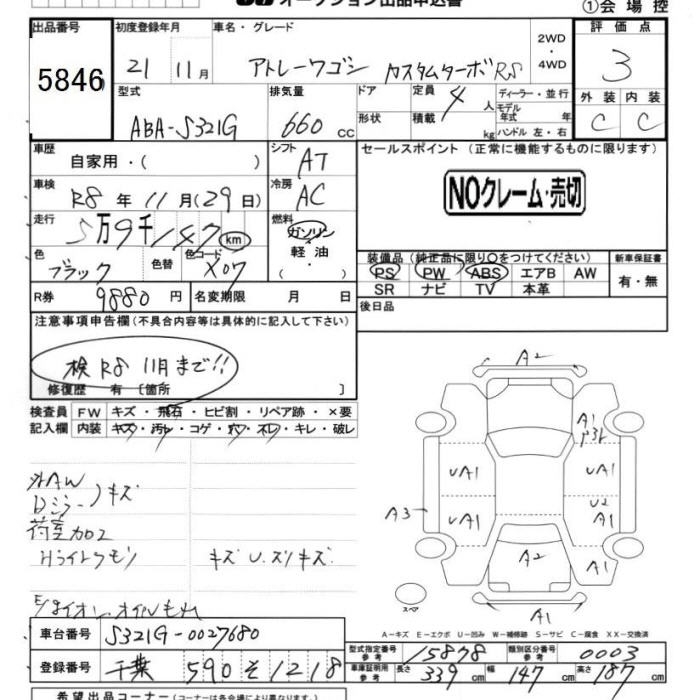 オークション出品申込書
①会場控
出品番号 初度登録年月 車名・グレード 2WD・4WD 評価点
5846 21 11月 アトレーワゴン カスタムターボRS 3
型式 排気量 ドア 定員 4人 ディーラー・並行 外装 内装
ABA-S321G 660cc 形状 積載 kg モデル年式 年 ハンドル 左・右 C C
車歴 自家用・( ) シフト AT セールスポイント (正常に機能するものに限ります)
車検 R8年11月(29日) 冷房 AC NOクレーム・売切
走行 5万9千147km 燃料 ガソリン 軽油・( )
色 ブラック 色替 色コード X07
装備品(純正品に限り○をつけてください) 新車保証書
PS PW ABS エアB AW 有・無
SR ナビ TV 本革
R券 9880円 名変期限 月 日 後日品
注意事項申告欄(不具合内容等は具体的に記入して下さい)
検 R8 11月まで!!
修復歴 有〔箇所 〕
検査員 FW キズ・飛石・ヒビ割・リペア跡・×要
記入欄 内装 キズ・汚レ・コゲ・穴・スレ・キレ・破レ
外AW
Dミラー キズ
荷室カロエ
Hライトクモリ キズ U.スリキズ
オイルもれ
A2
A1
UA1 UA1
U2
A3 UA1 A1
A2 A1
スペア
A1
A-キズ E-エクボ U-凹み W-補修跡 S-サビ C-腐食 XX-交換済
車台番号 S321G-0027680 型式指定番号 参考 15878 類別区分番号 参考 0003
登録番号 千葉 590 そ 1218 車庫証明用 参考 長さ 339cm 幅 147cm 高さ 187cm
希望出品コーナー(コーナーは各会場により異なります。)